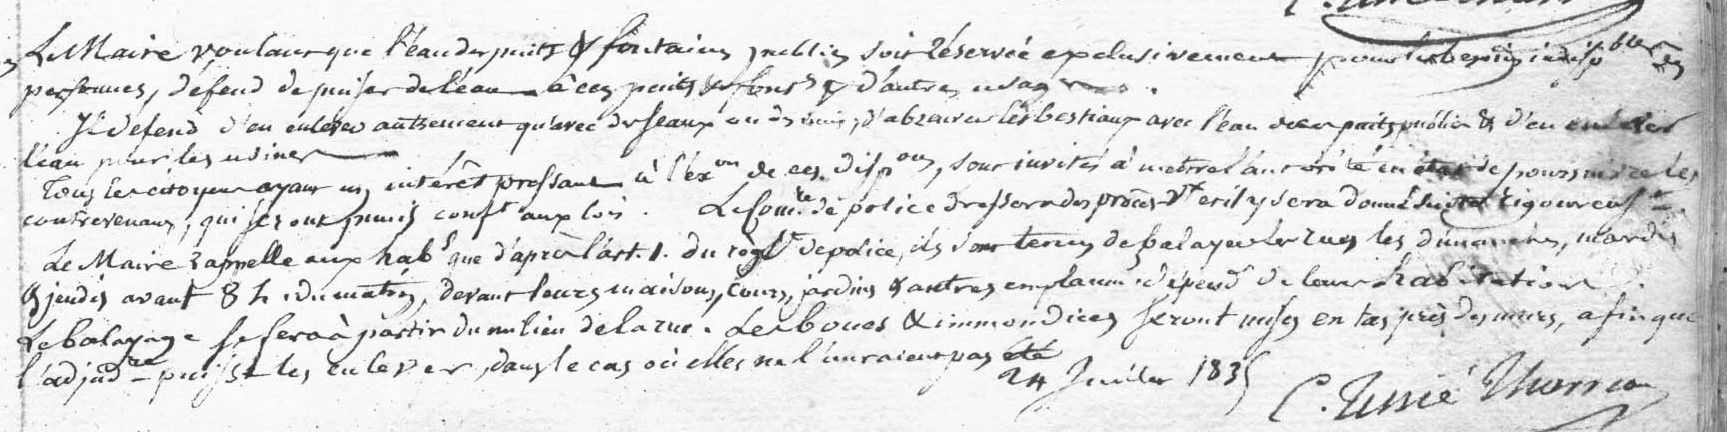 Le Maire voulant que l'eau des puits & fontaines publics soit réservée exclusivement pour les besoins indispbles des
personnes, défend de puiser de l'eau à ces puits & fonts pr d'autres usages.
Il défend d'en enlever autrement qu'avec des seaux ou des , d'abreuver les bestiaux avec l'eau des puits publics & d'en enlever
l'eau pour les usines
Tous les citoyens ayant un intérêt pressant à l'exon de ces dispons, sont invités à mettre l'autorité en état de poursuivre les
contrevenans, qui seront punis conft aux lois. Le Comre de police dressera des procès-vx et il y sera donné suite rigoureust.
Le Maire rappelle aux habs que d'après l'art. 1. du règlt de police, ils sont tenus de balayer les rues les dimanches, mardis
& jeudis avant 8 h. du matin, devant leurs maisons, cours, jardins & autres emplacemts dépends de leur habitation.
Le balayage se fera à partir du milieu de la rue. Les boues & immondices seront mises en tas près des murs, afin que
l'adjudre puisse les enlever, dans le cas où elles ne l'auraient pas été
24 Juillet 1835
C. Tessié Thorreau